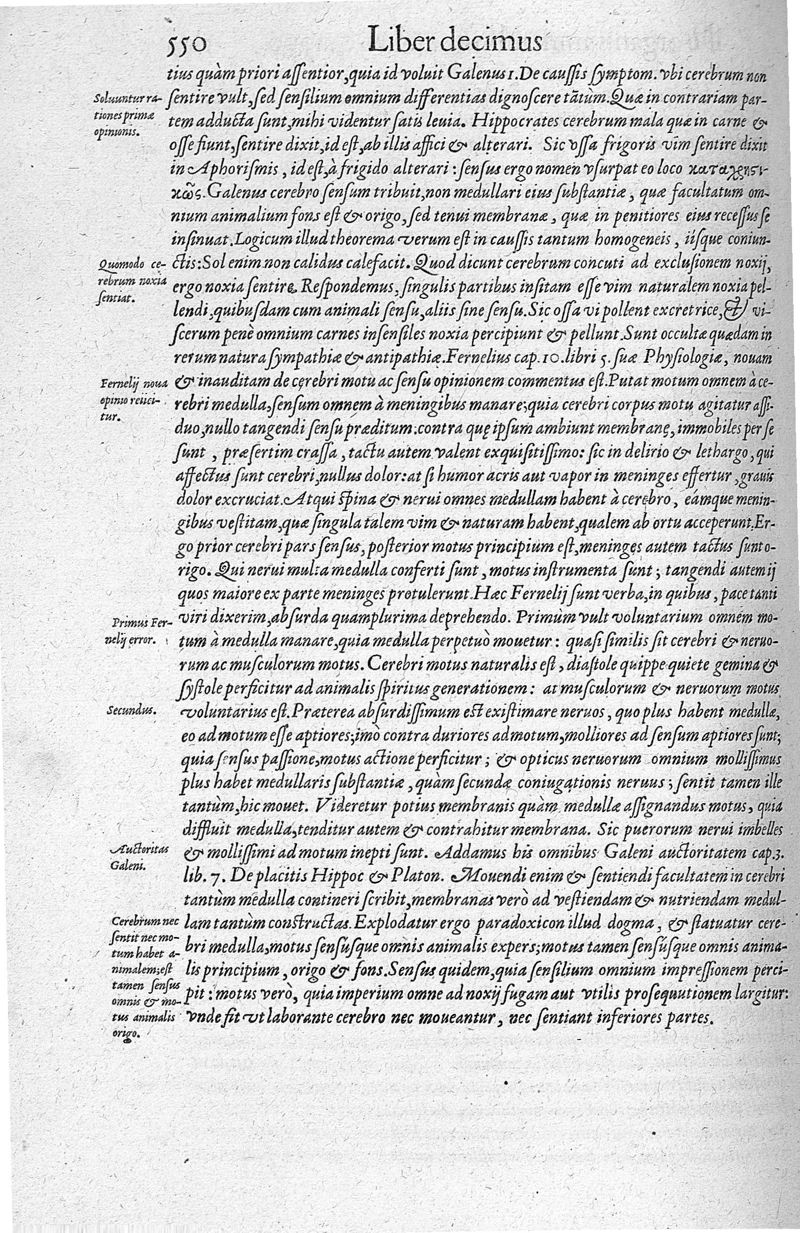 550 Liber decimus
tius quàm priori assentior, quia id voluit Galenus 1. De caussis symptom. vbi cerebrum non
Soluuntur ra-
tiones primæ
opinionis.
sentire vult, sed sensilium omnium differentias dignoscere tãtùm. Quæ in contrariam par-
tem adducta sunt, mihi videntur satis leuia. Hippocrates cerebrum mala quæ in carne &
osse fiunt, sentire dixit, id est, ab illis affici & alterari. Sic ossa frigoris vim sentire dixit
in Aphorismis, id est, à frigido alterari: sensus ergo nomen vsurpat eo loco καταχρηστι-
κῶς. Galenus cerebro sensum tribuit, non medullari eius substantiæ, quæ facultatum om-
nium animalium fons est & origo, sed tenui membranæ, quæ in penitiores eius recessus se
insinuat. Logicum illud theorema verum est in caussis tantum homogeneis, iisque coniun-
Quomodo ce-
rebrum noxia
sentiat.
ctis: Sol enim non calidus calefacit. Quod dicunt cerebrum concuti ad exclusionem noxij,
ergo noxia sentire. Respondemus, singulis partibus insitam esse vim naturalem noxia pel-
lendi, quibusdam cum animali sensu, aliis sine sensu. Sic ossa vi pollent excretrice, & vi-
scerum penè omnium carnes insensiles noxia percipiunt & pellunt. Sunt occultæ quædam in
rerum natura sympathiæ & antipathiæ. Fernelius cap. 10. libri 5. suæ Physiologiæ, nouam
Fernelij noua
opinio reiici-
tur.
& inauditam de cerebri motu ac sensu opinionem commentus est. Putat motum omnem à ce-
rebri medulla, sensum omnem à meningibus manare; quia cerebri corpus motu agitatur assi-
duo, nullo tangendi sensu præditum: contra quę ipsum ambiunt membranę, immobiles per se
sunt, præsertim crassa, tactu autem valent exquisitissimo: sic in delirio & lethargo, qui
affectus sunt cerebri, nullus dolor: at si humor acris aut vapor in meninges effertur, grauis
dolor excruciat. Atqui spina & nerui omnes medullam habent à cerebro, eámque menin-
gibus vestitam, quæ singula talem vim & naturam habent, qualem ab ortu acceperunt. Er-
go prior cerebri pars sensus, posterior motus principium est, meninges autem tactus sunt o-
rigo. Qui nerui multa medulla conferti sunt, motus instrumenta sunt; tangendi autem ij
quos maiore ex parte meninges protulerunt. Hæc Fernelij sunt verba, in quibus, pace tanti
Primus Fer-
nelij error.
viri dixerim, absurda quamplurima deprehendo. Primùm vult voluntarium omnem mo-
tum à medulla manare, quia medulla perpetuò mouetur: quasi similis sit cerebri & neruo-
rum ac musculorum motus. Cerebri motus naturalis est, diastole quippe quiete gemina &
systole perficitur ad animalis spiritus generationem: at musculorum & neruorum motus
Secundus.
voluntarius est. Præterea absurdissimum est existimare neruos, quo plus habent medullæ,
eo ad motum esse aptiores; imò contra duriores ad motum, molliores ad sensum aptiores sunt;
quia sensus passione, motus actione perficitur; & opticus neruorum omnium mollissimus
plus habet medullaris substantiæ, quàm secundæ coniugationis neruus; sentit tamen ille
tantùm, hic mouet. Videretur potius membranis quàm medullæ assignandus motus, quia
diffluit medulla, tenditur autem & contrahitur membrana. Sic puerorum nerui imbelles
Auctoritas
Galeni.
& mollissimi ad motum inepti sunt. Addamus his omnibus Galeni auctoritatem cap. 3.
lib. 7. De placitis Hippoc & Platon. Mouendi enim & sentiendi facultatem in cerebri
tantùm medulla contineri scribit, membranas verò ad vestiendam & nutriendam medul-
Cerebrum nec
sentit nec mo-
tum habet a-
nimalem; est
tamen sensus
omnis & mo-
tus animalis
origo.
lam tantùm constructas. Explodatur ergo paradoxicon illud dogma, & statuatur cere-
bri medulla, motus sensúsque omnis animalis expers; motus tamen sensúsque omnis anima-
lis principium, origo & fons. Sensus quidem, quia sensilium omnium impressionem perci-
pit: motus verò, quia imperium omne ad noxij fugam aut vtilis prosequutionem largitur:
vnde fit vt laborante cerebro nec moueantur, nec sentiant inferiores partes.